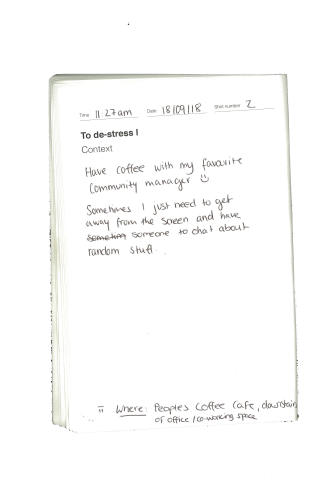 Time 11:27am Date 18/09/18 Shot number 2
To de-stress I
Context
Have coffee with my favourite
community manager
Sometimes I just need to get
away from the screen and have
someone to chat about
random stuff.
Where: Peoples Coffee Cafe, downstairs
of office / co-working space